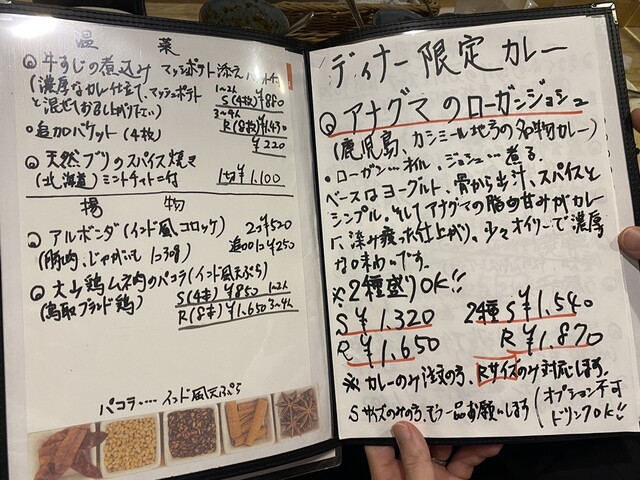 温菜
牛すじの煮込み マッシュポテト添え
(濃厚なカレー仕立て、マッシュポテト
と混ぜてお召し上がり下さい)
1~2人
S(4枚)¥880
3~4人
R(8枚)¥1,430
・追加バケット(4枚) ¥220
天然ブリのスパイス焼き
(北海道)ミントチャトニ付 1切¥1,100
揚物
アルボンダ(インド風コロッケ) 2コ¥520
(豚肉、じゃがいも 1コ30g) 追加1コ¥250
大山鶏ムネ肉のパコラ(インド風天ぷら)
(鳥取ブランド鶏) S(4本)¥850 1~2人
R(8本)¥1,650 3~4人
パコラ‥‥インド風天ぷら
ディナー限定カレー
アナグマのローガンジョシュ
(鹿児島、カシミール地方の名物カレー)
・ローガン…油、ジョシュ…煮る
ベースはヨーグルト、骨から出汁、スパイスと
シンプル。そしてアナグマの脂の甘みがカレー
に染み渡った仕上がり。少々オイリーで濃厚
な味わいです。
※2種盛りOK!!
S¥1,320 2種S¥1,540
R¥1,650 R¥1,870
※カレーのみ注文の方、Rサイズのみ対応します。
Sサイズのみの方、もう一品お願いします(オプション不可
ドリンクOK!!